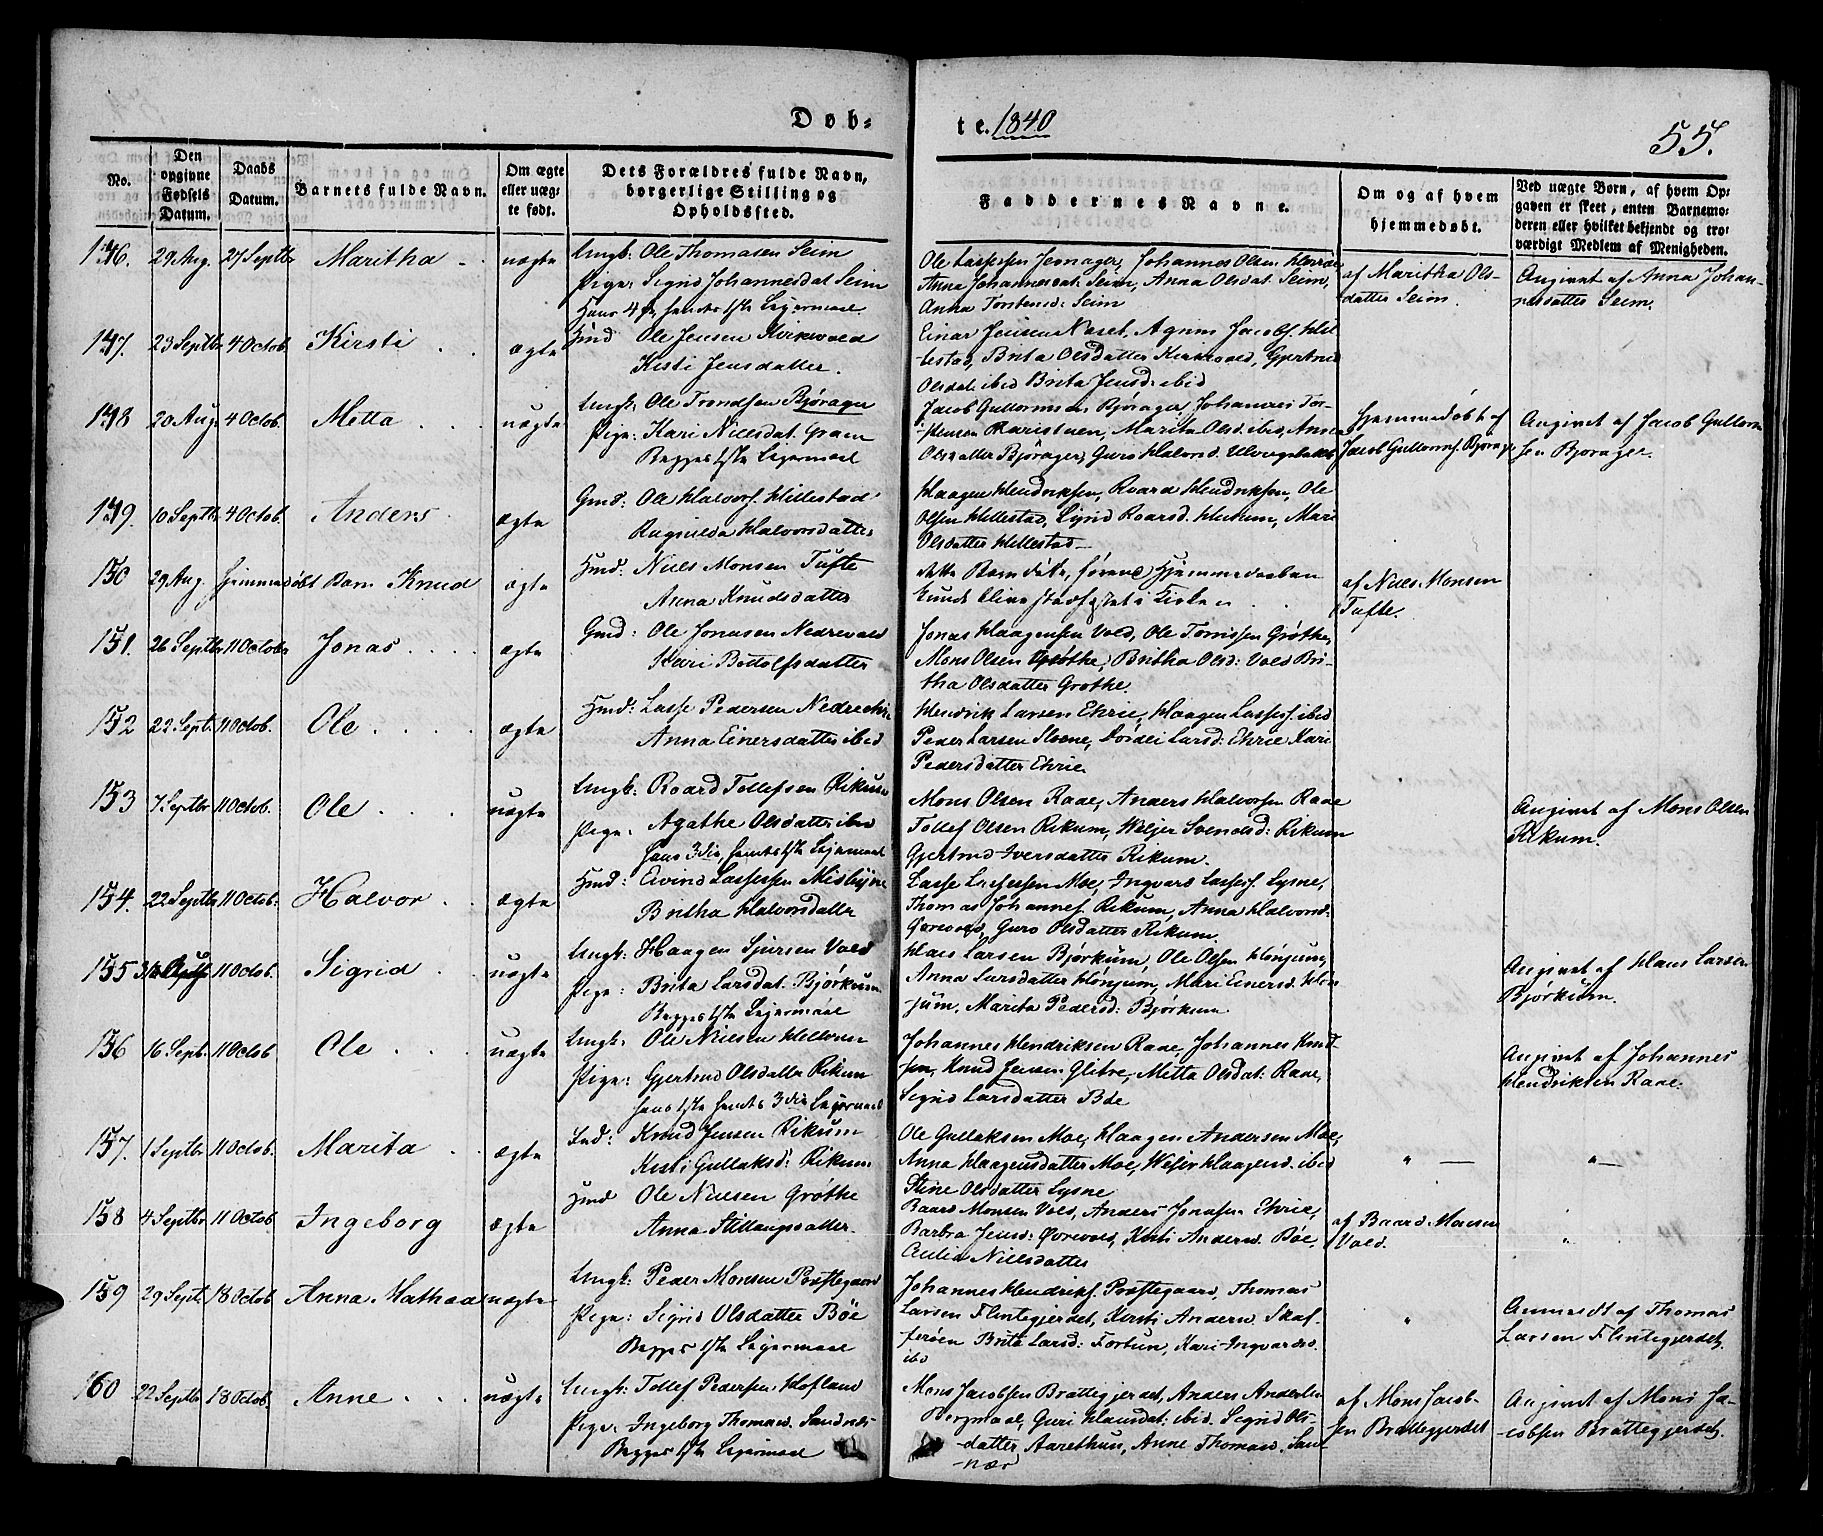 Døb-
te. 1840
55.
No.
Den opgivne Fødsels Datum.
Daabs Datum.
Barnets fulde Navn.
Om ægte eller uæg-te født.
Dets Forældres fulde Navn, borgerlige Stilling og Opholdssted.
Faddernes Navne.
Om og af hvem hjemmedøbt.
Ved uægte Børn, af hvem Op-
gaven er skeet, enten Barnemo-
deren eller hvilket bekjendt og tro-
værdigt Medlem af Menigheden.
146. 29 Aug. 27 Septbr Maritha uægte Ungk: Ole Thomasen Seim
Pige: Sigrid Johannesdat Seim
Ole Lassesen Johannes Olsen
Anna Johannesdat: Seim, Anna Olsdat. Seim,
Anna Torstensd: Seim
af Maritha Ols-
datter Seim.
Angivet af Anna Johan-
nesdatter Seim.
147. 23 Septbr 4 Octob. Kirsti ægte Ole Jensen Kvikevold
Kisti Jensdatter.
Einar Jensen Næset,
Brita Olsdatter Gjertrud
Olsdat: ibid Brita Jensd: ibid
148 20 Aug. 4 Octob. Metta uægte Ungk: Ole Trondsen Bjørager
Pige: Kari Nielsdat. Gram
Begges 1ste Leiermaal
Jacob Guttormsen Bjørager, Johannes Tor-
Marita Olsd. ibid, Anna
Olsdatter Bjørager, Guro Halvorsd.
Hjemmedøbt af
Jacob Guttormss. Bjørager
Angivet af Jacob Guttorm-
sen Bjørager.
149. 10 Septbr 4 Octob. Anders ægte Gmd: Ole Halvors. Hillestad
Ragnilda Halvorsdatter
Haagen Hendriksen, Roard Hendriksen, Ole
Olsen Hillestad, Sigrid Roarsd. Mari
Olsdatter Hillestad
150 29 Aug. hjemmedøbt Barn Knud ægte Hmd: Niels Monsen Tufte
Anna Knudsdatter
dette Barn døde, førend Hjemmedaaben
kunde blive stadfæstet i Kirken
af Niels Monsen
Tufte.
151. 26 Septbr 11 Octobr Jonas ægte Gmd: Ole Jonasen Nedrevold
Kari Botolfsdatter
Jonas Haagensen Vold, Ole Tomssen Grøthe,
Mons Olsen Grøthe, Britha Olsd: Vold Bri-
tha Olsdatter Grøthe.
152 22 Septb. 11 Octob. Ole ægte Hmd: Lasse Pedersen
Anna Einersdatter ibid
Hendrik Larsen Ehrie, Haagen Lasses. ibid
Peder Larsen Larsd: Ehrie Kari
Pedersdatter Ehrie
153 7 Septbr 11 Octob. Ole uægte Ungk: Roard Tollefsen Rikum
Pige: Agathe Olsdatter ibid
hans 3die, hendes 1ste Leiermaal
Mons Olsen Raae, Anders Halvorsen Raae
Tollef Olsen Rikum, Svendsd: Rikum
Gjertrud Iversdatter Rikum.
Angivet af Mons Olsen
Rikum.
154. 22 Septbr 11 Octob. Halvor ægte Hmd: Eivind Lassesen
Britha Halvorsdatter
Lasse Lassesen Moe, Ingvard Lasses. Lysne,
Thomas Johannes. Rikum, Anna Halvorsd:
Guro Olsdatter Rikum.
155 11 Octob. Sigrid uægte Ungk: Haagen Sjursen Vold
Pige: Brita Larsdat. Bjørkum
Begges 1ste Leiermaal
Hans Larsen Bjørkum, Ole Olsen Hønjum
Anna Larsdatter Hønjum, Mari Einersd. Høn-
jum, Marita Pedersd: Bjørkum
Angivet af Hans Larsen
Bjørkum.
156 16 Septbr. 11 Octob Ole uægte Ungk: Ole Nielsen
Pige: Gjertrud Olsdatter Rikum
hans 1ste hendes 3die Leiermaal
Johannes Hendriksen Raae, Johannes Knud-
sen, Knud Jensen Glitre, Metta Olsdat: Raae,
Sigrid Larsdatter Bøe
Angivet af Johannes
Hendriksen Raae.
157. 1 Septbr 11 Octob. Marita ægte Knud Jensen Rikum
Kisti Gullaksd: Rikum
Ole Gullaksen Moe, Haagen Andersen Moe,
Anna Haagensdatter Moe, Haagensd. ibid
Stine Olsdatter Lysne
" —
" —
158 4 Septbr 11 Octob. Ingeborg ægte Hmd Ole Nielsen Grøthe
Anna
Baard Monsen Vold, Anders Jonasen Ehrie,
Barbra Jensd: Kisti Andersd. Bøe,
Nielsdatter
af Baard Monsen
Vold.
"
159 29 Septr. 18 Octob Anna Mathea uægte Ungk: Peder Monsen Præstegaard
Pige: Sigrid Olsdatter Bøe
Begges 1ste Leiermaal
Johannes Hendriks. Præstegaard, Thomas
Larsen Flintegjerdet, Kirsti Andersd.
Brita Larsd: Fortun, Kari Ingvardsd.
ibid
"
Anmeldt af Thomas
Larsen Flintegjerdet
160 22 Septbr 18 Octob. Anne uægte Ungk: Tollef Pedersen Hofland
Pige: Ingeborg Thomasd. Sandnæs
Begges 1ste Leiermaal
Mons Jacobsen Brattegjerdet, Anders Andersen
Guri ibid. Sigrid Ols-
datter Anne Thomasd. San-
næs
af Mons Jacob-
sen Brattegjerdet
Angivet af Mons Ja-
cobsen Brattegjerdet.